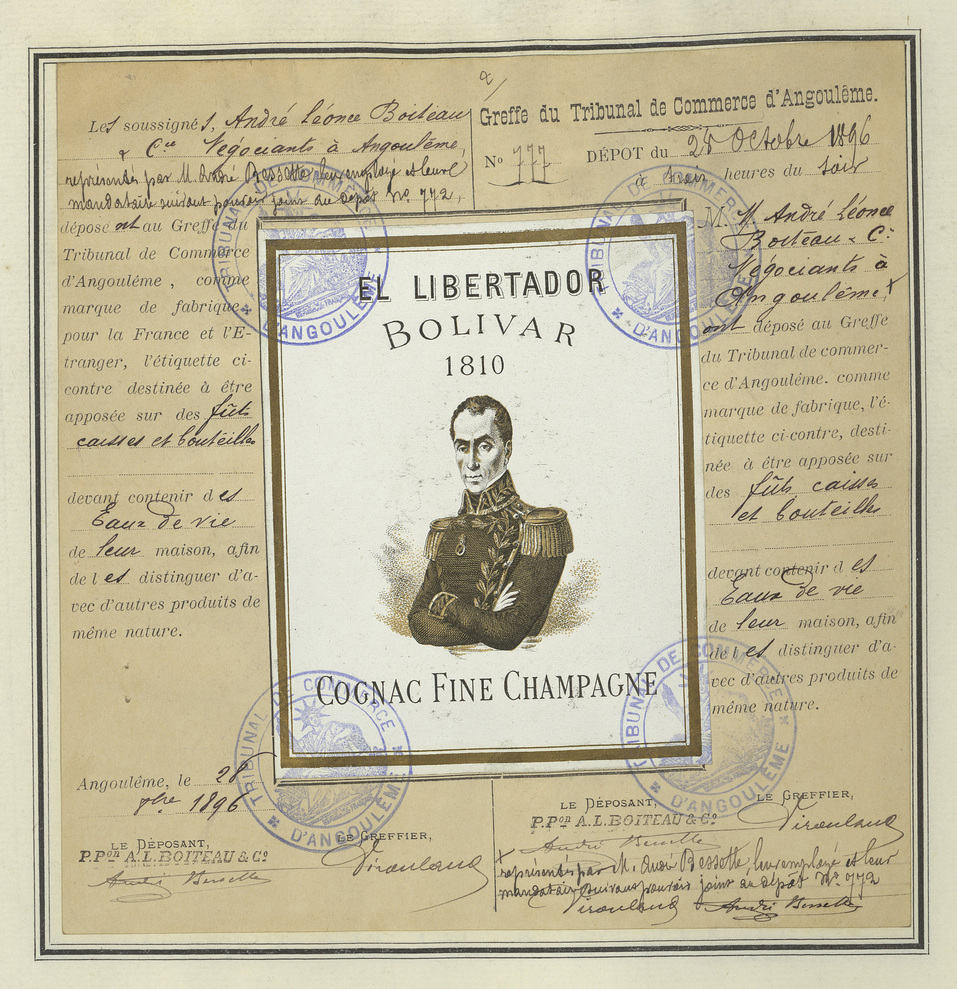 Les soussignés, André Léonce Boiteau
& Cie Négociants à Angoulême,
représentés par M. André Bessette leur employé et leur
mandataire suivant pouvoir joint au dépôt No 772,
dépose nt au Greffe du
Tribunal de Commerce
d'Angoulême, comme
marque de fabrique
pour la France et l'E-
tranger, l'étiquette ci-
contre destinée à être
apposée sur des fûts
caisses et bouteilles
devant contenir d es
Eaux de vie
de leur maison, afin
de l es distinguer d'a-
vec d'autres produits de
même nature.
Angoulême, le 28
8bre 1896
LE DÉPOSANT,
P.Pon A.L. BOITEAU & Co
André Bessette
LE GREFFIER,
Greffe du Tribunal de Commerce d'Angoulême.
No 777
DÉPOT du 28 Octobre 1896
à trois heures du soir
M. M. André Léonce
Boiteau & Cie
Négociants à
Angoulême, x
ont déposé au Greffe
du Tribunal de commer-
ce d'Angoulême. comme
marque de fabrique, l'é-
tiquette ci-contre, desti-
née à être apposée sur
des fûts caisses
et bouteilles
devant contenir d es
Eaux de vie
de leur maison, afin
de l es distinguer d'a-
vec d'autres produits de
même nature.
LE DÉPOSANT,
P.Pon A.L. BOITEAU & Co
André Bessette
LE GREFFIER,
x représentés par M. André Bessette, leur employé et leur
mandataire suivant pouvoir joint au dépôt No 772
André Bessette
EL LIBERTADOR
BOLIVAR
1810
COGNAC FINE CHAMPAGNE
TRIBUNAL DE COMMERCE D'ANGOULÊME
TRIBUNAL DE COMMERCE D'ANGOULÊME
TRIBUNAL DE COMMERCE D'ANGOULÊME
TRIBUNAL DE COMMERCE D'ANGOULÊME